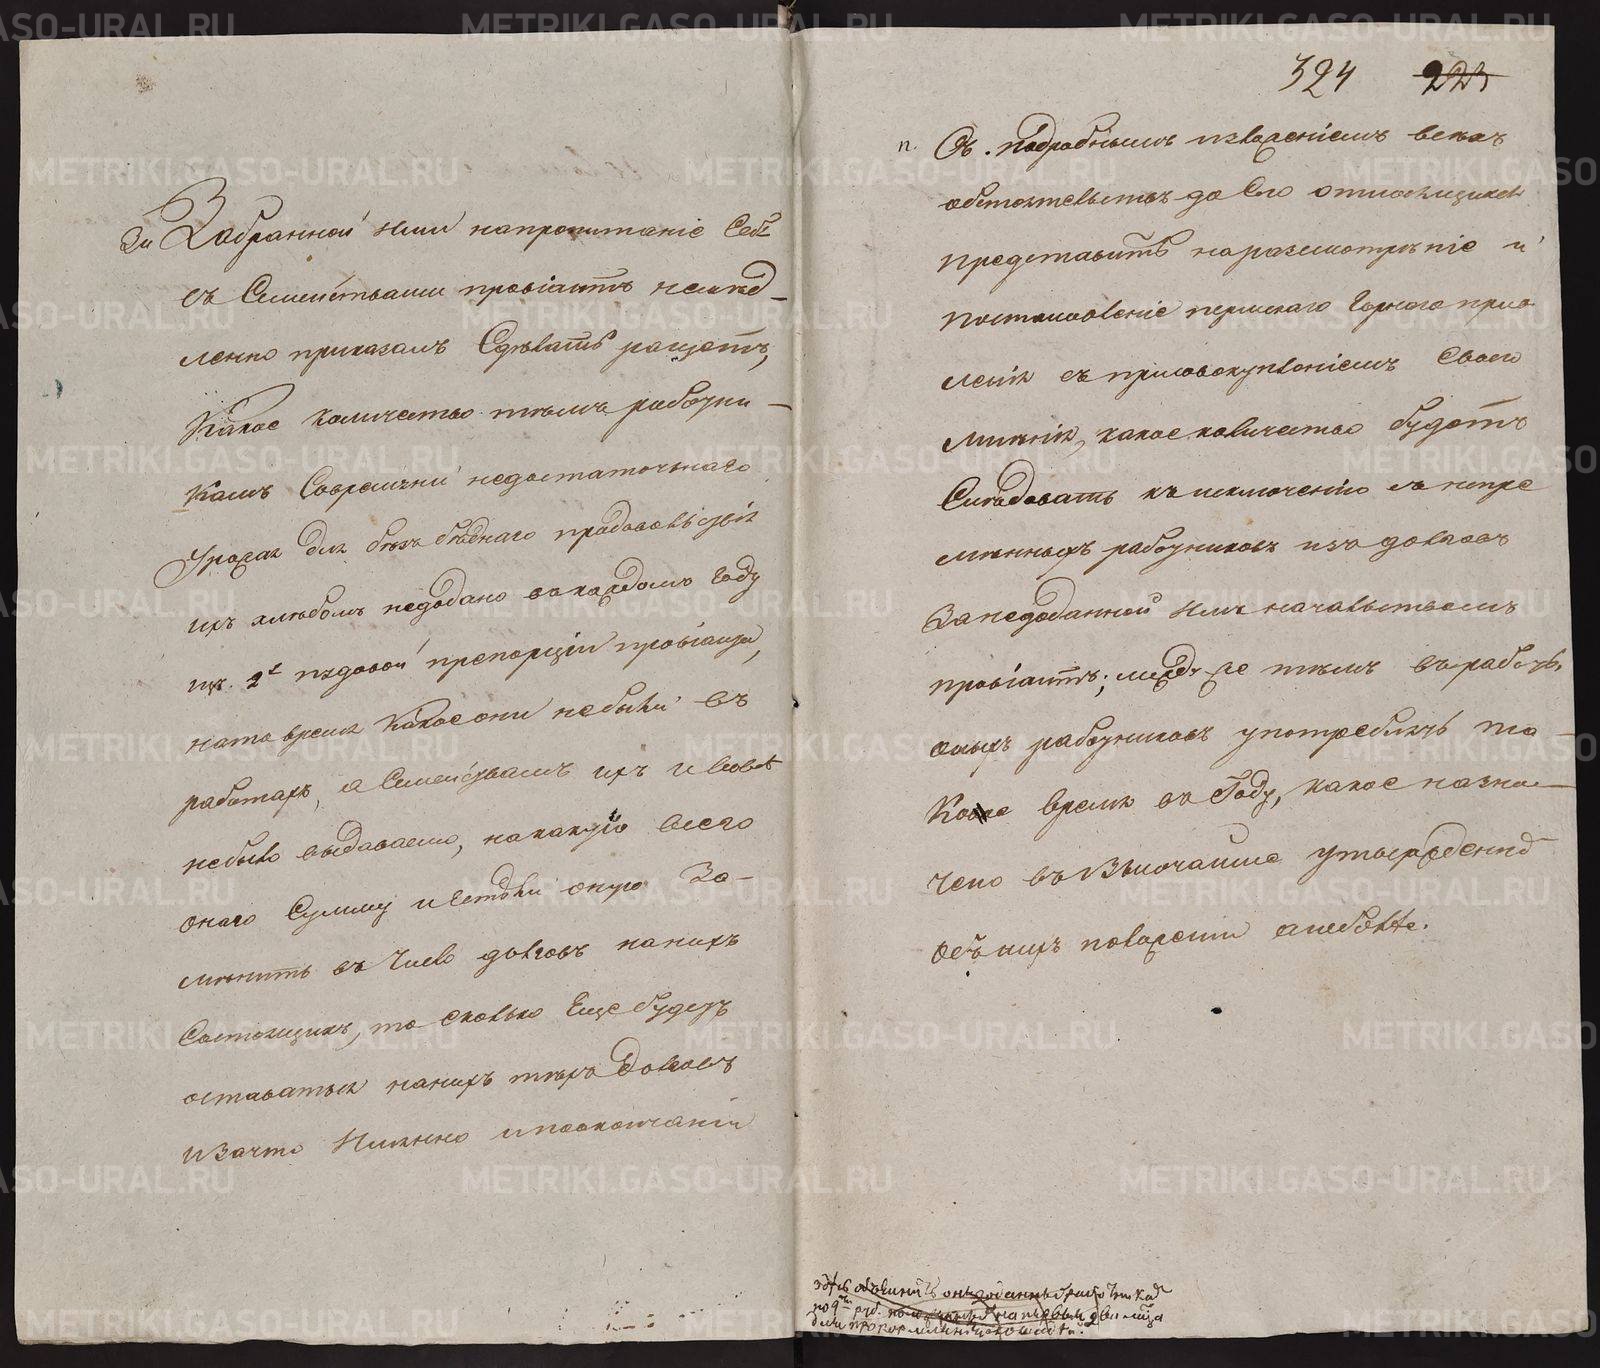 За Забранной ими на пропитаніе Себѣ
съ Семействами провіантъ немед-
ленно приказалъ Сдѣлать расчетъ,
Какое количество тѣмъ работни-
камъ Современи недостаточнаго
Урожая для безбѣднаго продовольствія
ихъ хлѣбомъ недодано въ каждомъ Году
изъ 2й годовой препорціи провіанта,
на то время какое они не были въ
работахъ, а Семействамъ ихъ и вовсе
небыло выдаваемо, на какую всего
онаго Сумму и естьли оную За-
мѣнить въ число долговъ на нихъ
Состоящихъ, то сколько Еще будетъ
оставаться на нихъ тѣхъ долговъ
и за что Именно и по окончаніи
324 223
п. Съ подробнымъ изъясненіемъ всѣхъ
обстоятельствъ до Сего относящихся
представить на разсмотрѣніе и
постановленіе пермскаго Горнаго прав
ленія съ присовокупленіемъ Своего
мнѣнія, какое количество будетъ
Слѣдовать къ исключенію съ непре
мѣнныхъ работниковъ изъ долговъ
За недоданной имъ начальствомъ
провіантъ; между же тѣмъ въ работы
оныхъ работниковъ употреблять та
кое время въ Году, какое назна-
чено въ Высочайше утвержденномъ
объ нихъ положеніи